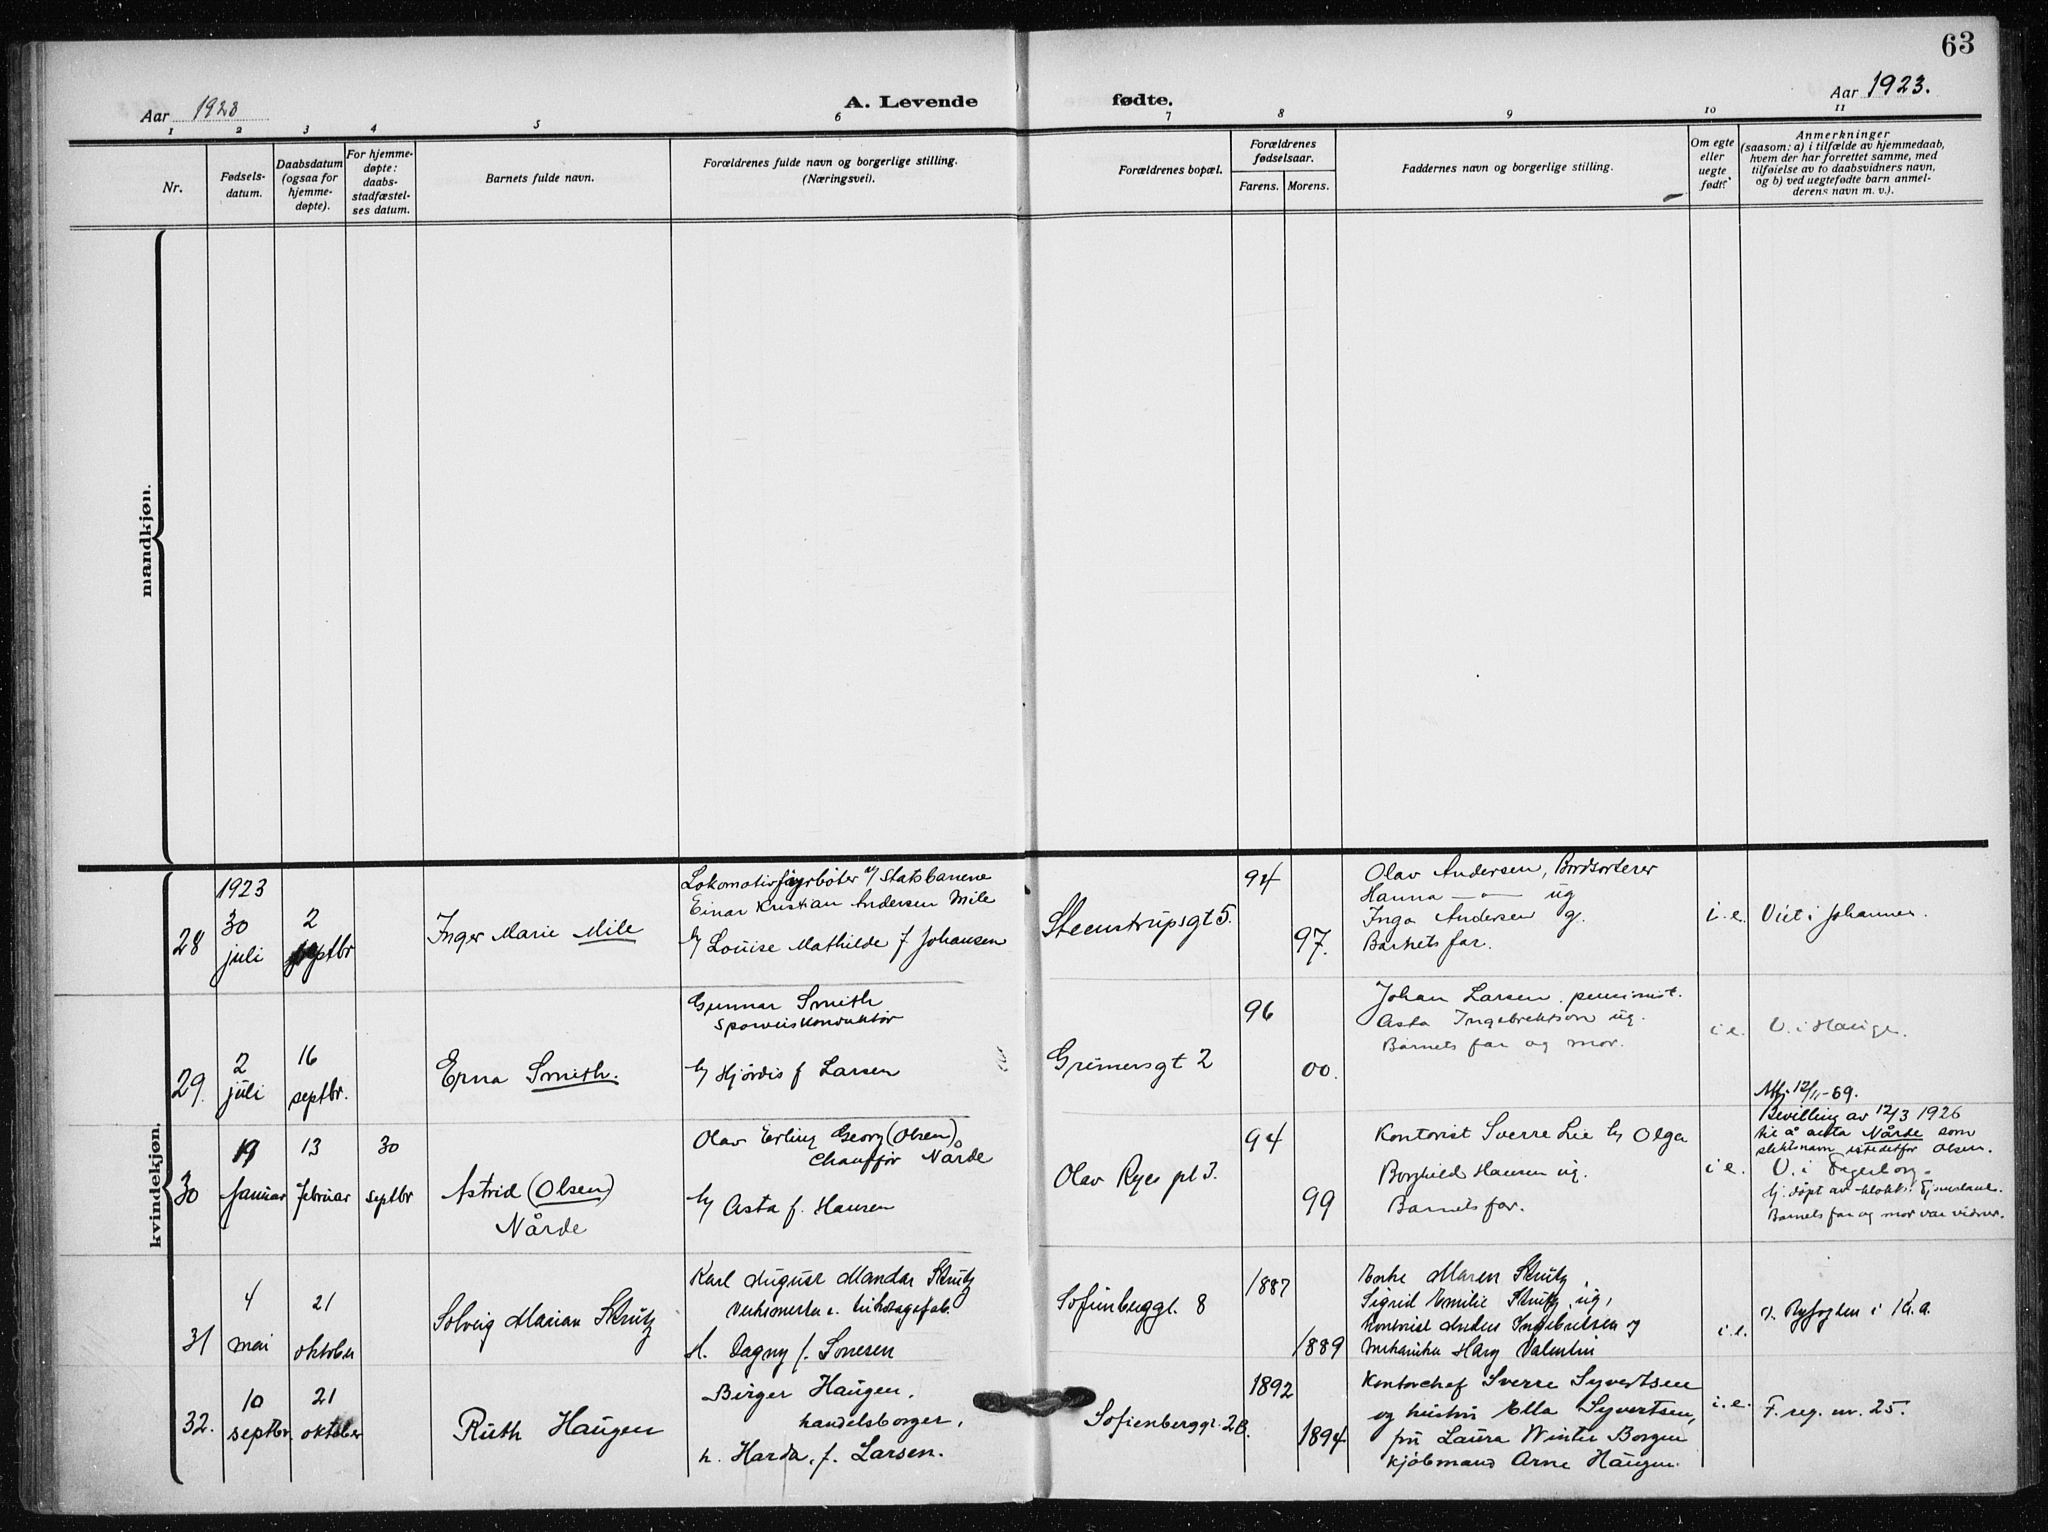 63
Aar 1923
A. Levende
fødte.
Aar 1923.
1 2 3 4 5 6 7 8 9 10 11
Nr.
Fødsels-
datum.
Daabsdatum
(ogsaa for
hjemme-
døpte).
For hjemme-
døpte:
daabs-
stadfæstel-
ses datum.
Barnets fulde navn.
Forældrenes fulde navn og borgerlige stilling.
(Næringsvei).
Forældrenes bopæl.
Forældrenes
fødselsaar.
Farens. Morens.
Faddernes navn og borgerlige stilling.
Om egte
eller
uegte
født.
Anmerkninger
(saasom: a) i tilfælde av hjemmedaab,
hvem der har forrettet samme, med
tilføielse av to daabsvidners navn,
og b) ved uegtefødte barn anmel-
derens navn m. v.).
mandkjøn.
kvindekjøn.
28
1923
30
juli
2
septbr
Inger Marie Mile
Lokomotivfyrbøter v/ Statsbanene
Einar Kristian Andersen Mile
h/ Louise Mathilde f Johansen
Steenstrupsgt 5.
94
97.
Olav Andersen, Bordsorterer
Hanna — " — ug
Inga Andersen g.
Barnets far.
i.e.
Viet i Johannes.
29.
2
juli
16
septbr.
Erna Smith.
Gunnar Smith
Sporveiskonduktør
h/ Hjørdis f Larsen
Grünersgt 2
96
00.
Johan Larsen, pensionist.
Asta Ingebrektson ug.
Barnets far og mor.
i e.
V. i Hauge.
12/11-69.
30
19
Januar
13
februar
30
septbr
Astrid (Olsen)
Nårde
Olav Erling Georg (Olsen)
Chauffør Nårde
h/ Asta f. Hansen
Olav Ryes pl 3.
94
99
Kontorist Sverre Lie h/ Olga
Borghild Hansen ug.
Barnets far.
i e.
Bevilling av 12/3 1926
til å anta Nårde som
slektsnavn istedetfor Olsen.
V. i Fagerborg.
hj. døpt av klokk.
Barnets far og mor var vidner.
31
4
mai
21
oktober
Solveig Marian Strütz
Karl August Mandar Strütz
h. Dagny f. Sonesen
Sofienberggt. 8
1887
1889
Enke Maren Strütz,
Sigrid Emilie Strütz, ug,
kontorist Anders Ingebretsen og
mekaniker Harry Valentin
i.e.
v. Ryfogden i Kr.a.
32.
10
septbr.
21
oktober
Ruth Haugen
Birger Haugen,
handelsborger,
h. Harda, f. Larsen.
Sofienberggt. 2B.
1892
1894.
Kontorchef Sverre Syvertsen
og hustru Ella Syvertsen,
fru Laura Winter Borgen
kjøbmand Arne Haugen.
i.e.
F. reg. nr. 25.